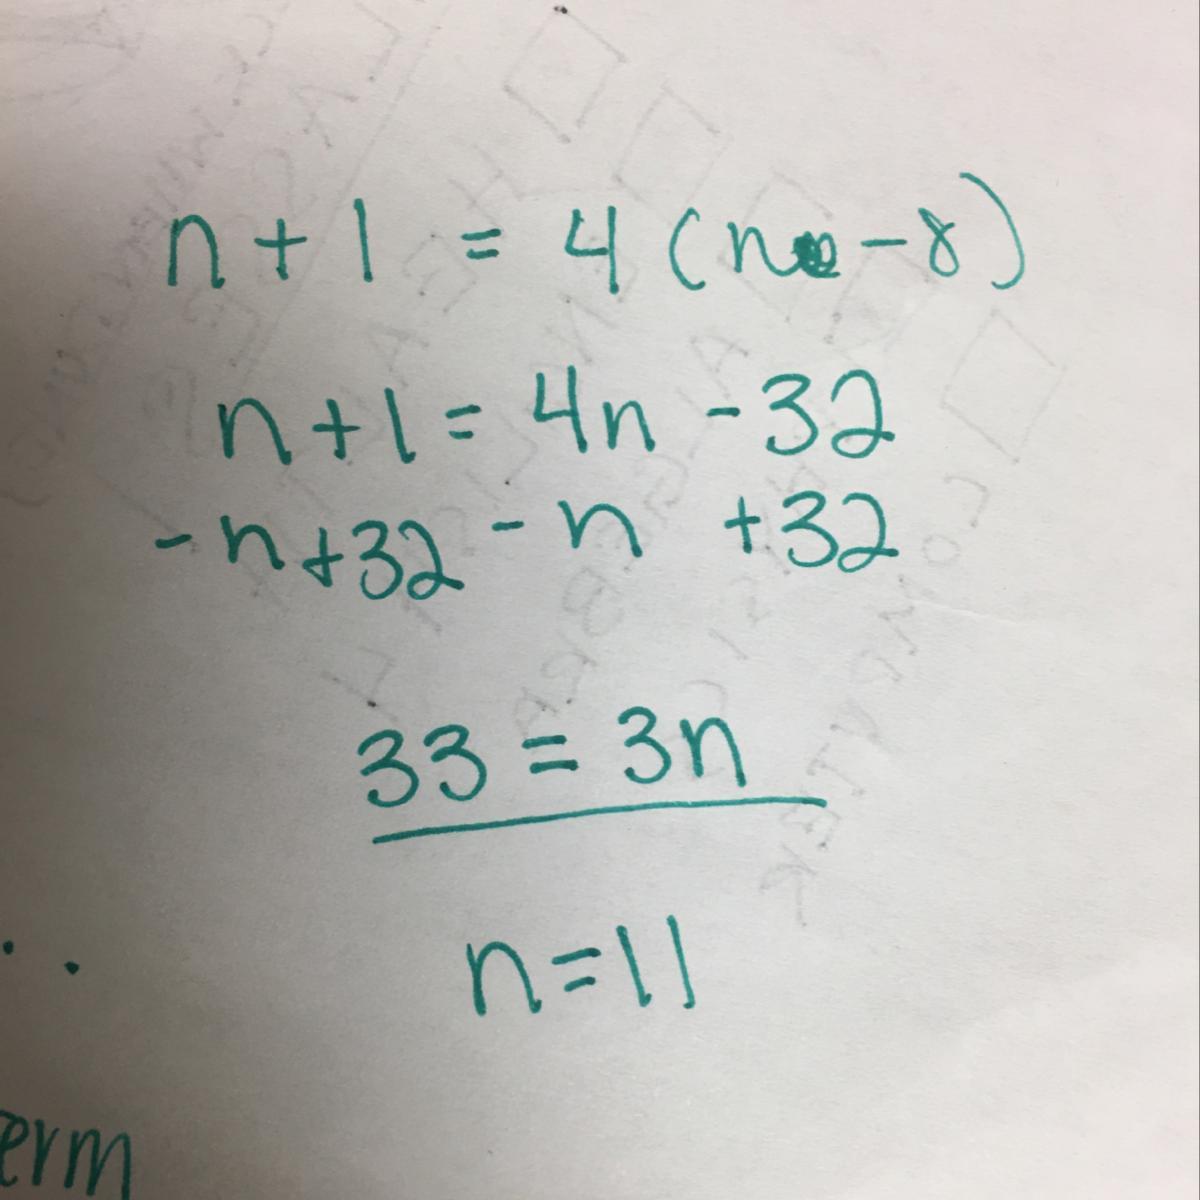 n + 1 = 4 (n - 8)
n + 1 = 4n - 32
- n + 32 - n + 32
33 = 3n
n = 11
erm